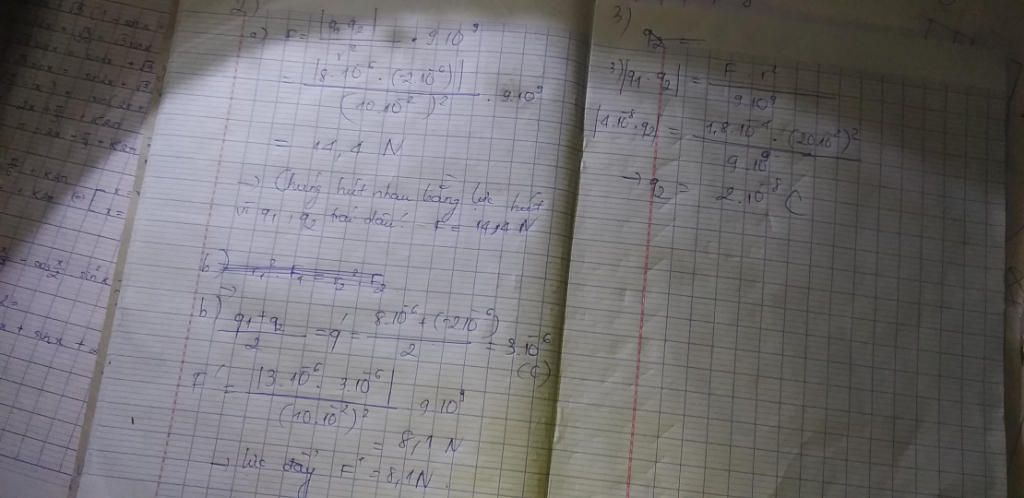 2)
a) F = |q₁.q₂| / r² . 9.10⁹
= |8.10⁻⁶ . (-2.10⁻⁶)| / (10.10⁻²)² . 9.10⁹
= 14,4 N
→ Chúng hút nhau bằng lực hút
vì q₁, q₂ trái dấu! F = 14,4 N
b)
b) → (q₁ + q₂) / 2 = q' = (8.10⁻⁶ + (-2.10⁻⁶)) / 2 = 3.10⁻⁶
(C)
F' = |3.10⁻⁶ . 3.10⁻⁶| / (10.10⁻²)² 9.10⁹
= 8,1 N
→ lực đẩy F' = 8,1 N.
3)
q₂ =
3) |q₁ . q₂| = F . r² / 9.10⁹
|4.10⁻⁸.q₂ = 1,8.10⁻⁴ . (20.10⁻²)² / 9.10⁹
→ q₂ = 2.10⁻⁸ C